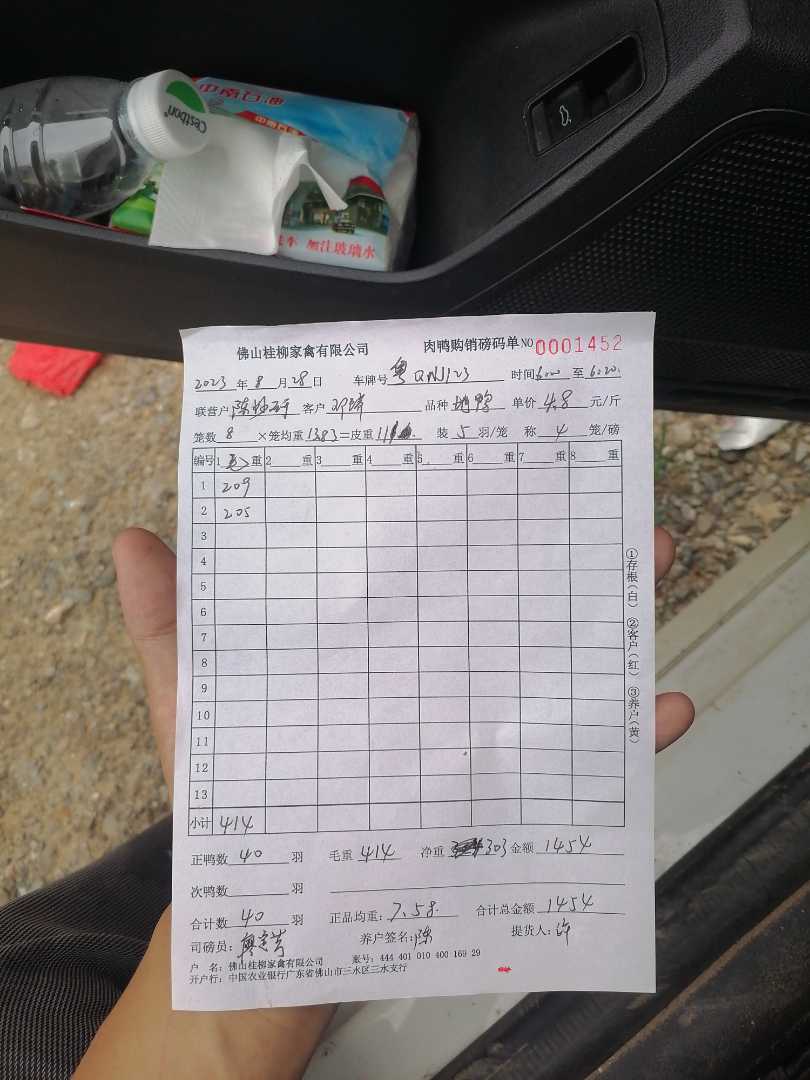 中南石油
Cestbon
中南石油
加注玻璃水
佛山桂柳家禽有限公司 肉鸭购销磅码单 NO 0001452
2023 年 8 月 28 日 车牌号 粤 时间 6:00 至 6:20
联营户 陈 客户 邓 品种 单价 4.8 元/斤
笼数 8 ×笼均重 13.83 =皮重 111 装 5 羽/笼 称 4 笼/磅
编号 1 毛 重 2 重 3 重 4 重 5 重 6 重 7 重 8 重
1 209
2 205
3
4
5
6
7
8
9
10
11
12
13
小计 414
①存根(白) ②客户(红) ③养户(黄)
正鸭数 40 羽 毛重 414 净重 303 金额 1454
次鸭数 羽
合计数 40 羽 正品均重: 7.58 合计总金额 1454
司磅员: 养户签名: 陈 提货人: 许
户 名: 佛山桂柳家禽有限公司 账号: 444 401 010 400 169 29
开户行: 中国农业银行广东省佛山市三水区三水支行